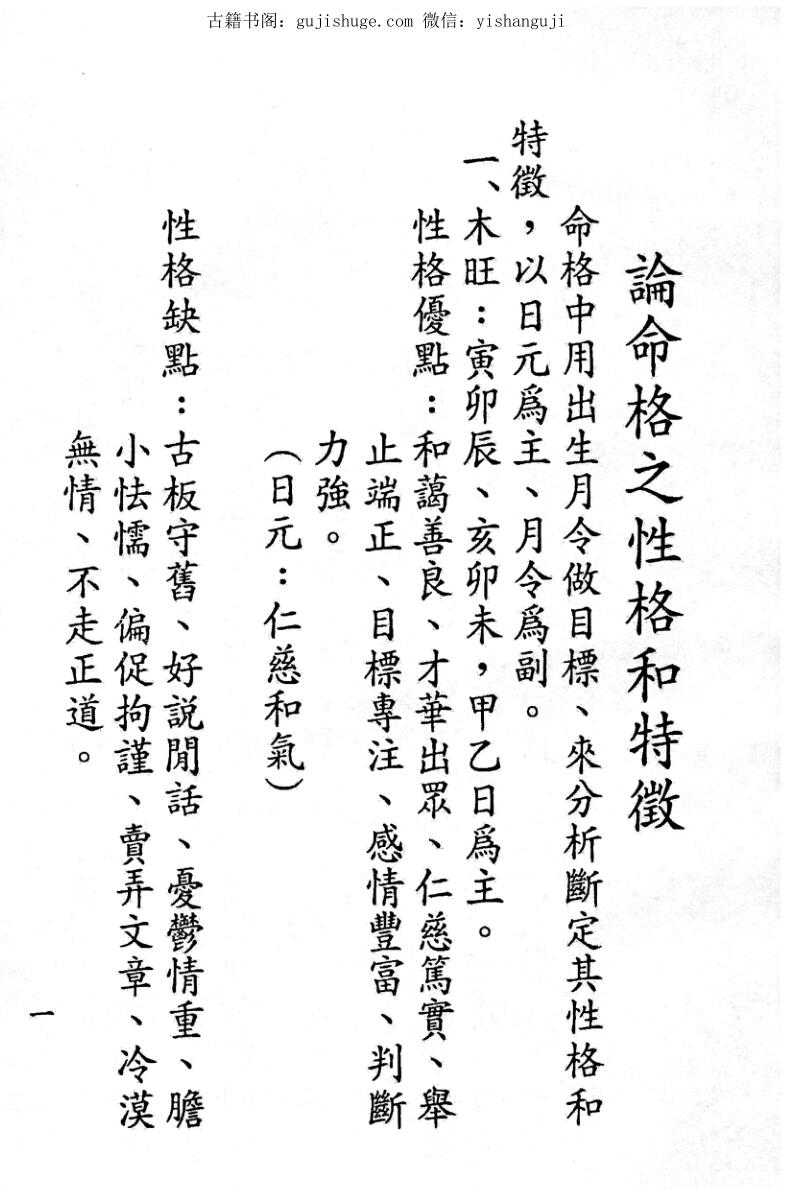 古籍书阁：gujishuge.com 微信：yishanguji
論命格之性格和特徵
命格中用出生月令做目標、來分析斷定其性格和
特徵，以日元爲主、月令爲副。
一、木旺：寅卯辰、亥卯未，甲乙日爲主。
性格優點：和藹善良、才華出眾、仁慈篤實、舉
止端正、目標專注、感情豐富、判斷
力強。
（日元：仁慈和氣）
性格缺點：古板守舊、好說閒話、憂鬱情重、膽
小怯懦、偏促拘謹、賣弄文章、冷漠
無情、不走正道。
一